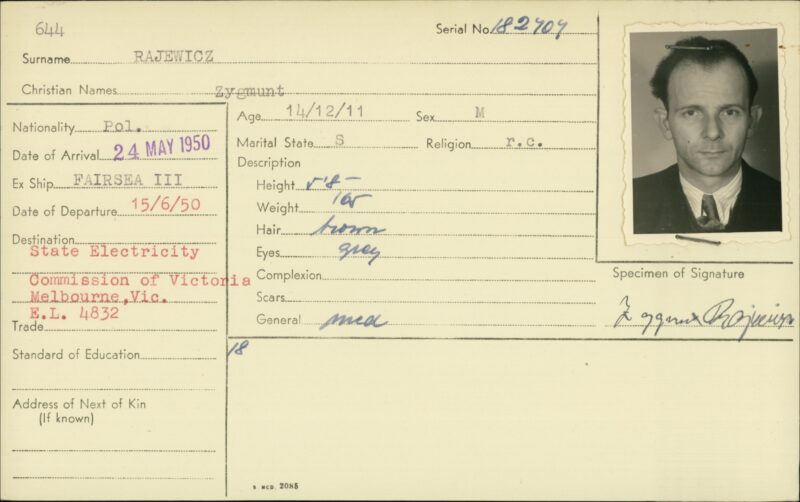 644
Serial No. 182707
Surname RAJEWICZ
Christian Names Zygmunt
Nationality Pol.
Date of Arrival 24 MAY 1950
Ex Ship FAIRSEA III
Date of Departure 15/6/50
Destination
State Electricity
Commission of Victoria
Melbourne,Vic.
E.L. 4832
Trade
Standard of Education
Address of Next of Kin
(If known)
Age 14/12/11 Sex M
Marital State S Religion r.c.
Description
Height 5'8
Weight
Hair brown
Eyes grey
Complexion
Scars
General med
18
Specimen of Signature
Zygmunt Rajewicz
2085